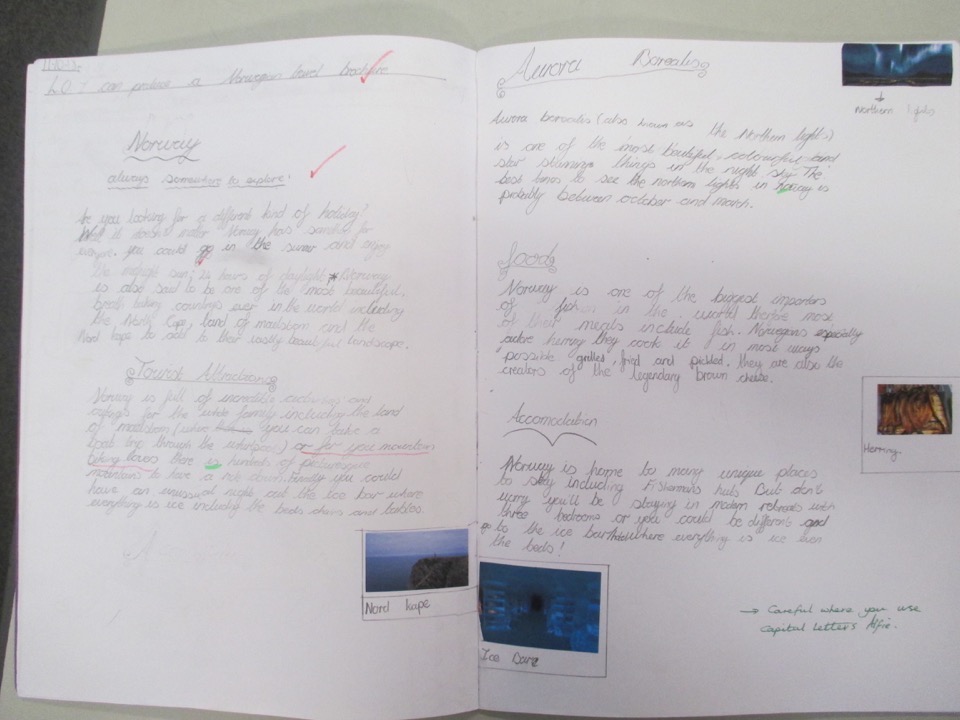 L.O. I can produce a Norwegian travel brochure
Norway
always somewhere to explore!
Are you looking for a different kind of holiday?
Well it doesn't mater Norway has somthing for
you could go in the sumer and enjoy
The midnight sun, 24 hours of daylight, Norway
is also said to be one of the most beautiful,
breath taking countrys ever in the world including
the North Cape, land of maelstrom and the
Nord kape to add to their vastly beautiful landscape.
Tourist Attractions
Norway is full of incredible activities and
for the whole family including the land
of maelstrom (where you can take a
boat trip through the whirlpools) or for you mountain
biking lovers there is hundreds of picturesque
mountains to have a ride down. Finally you could
have an unusual night out the Ice bar where
everything is ice including the beds chairs and tables.
Aurora Borealis
Northern lights
Aurora borealis (also known as the Northern lights)
is one of the most beautiful, colourful and
star things in the night sky. The
best times to see the northern lights in Norway is
probably between october and march.
food
Norway is one of the biggest importers
of fish in the world therfore most
of their meals include fish. Norwegans especially
they cook it in most ways
possible grilled, fried and pickled. they are also the
creators of the legendary brown cheese.
Herring
Accomodation
Norway is home to many unique places
to stay including Fishermans huts But don't
worry you'll be staying in modern with
three bedrooms or you could be different and
go to the ice bar/hotel where everything is ice even
the beds!
Nord kape
Ice Bar
→ Careful where you use
capital letters Alfie.